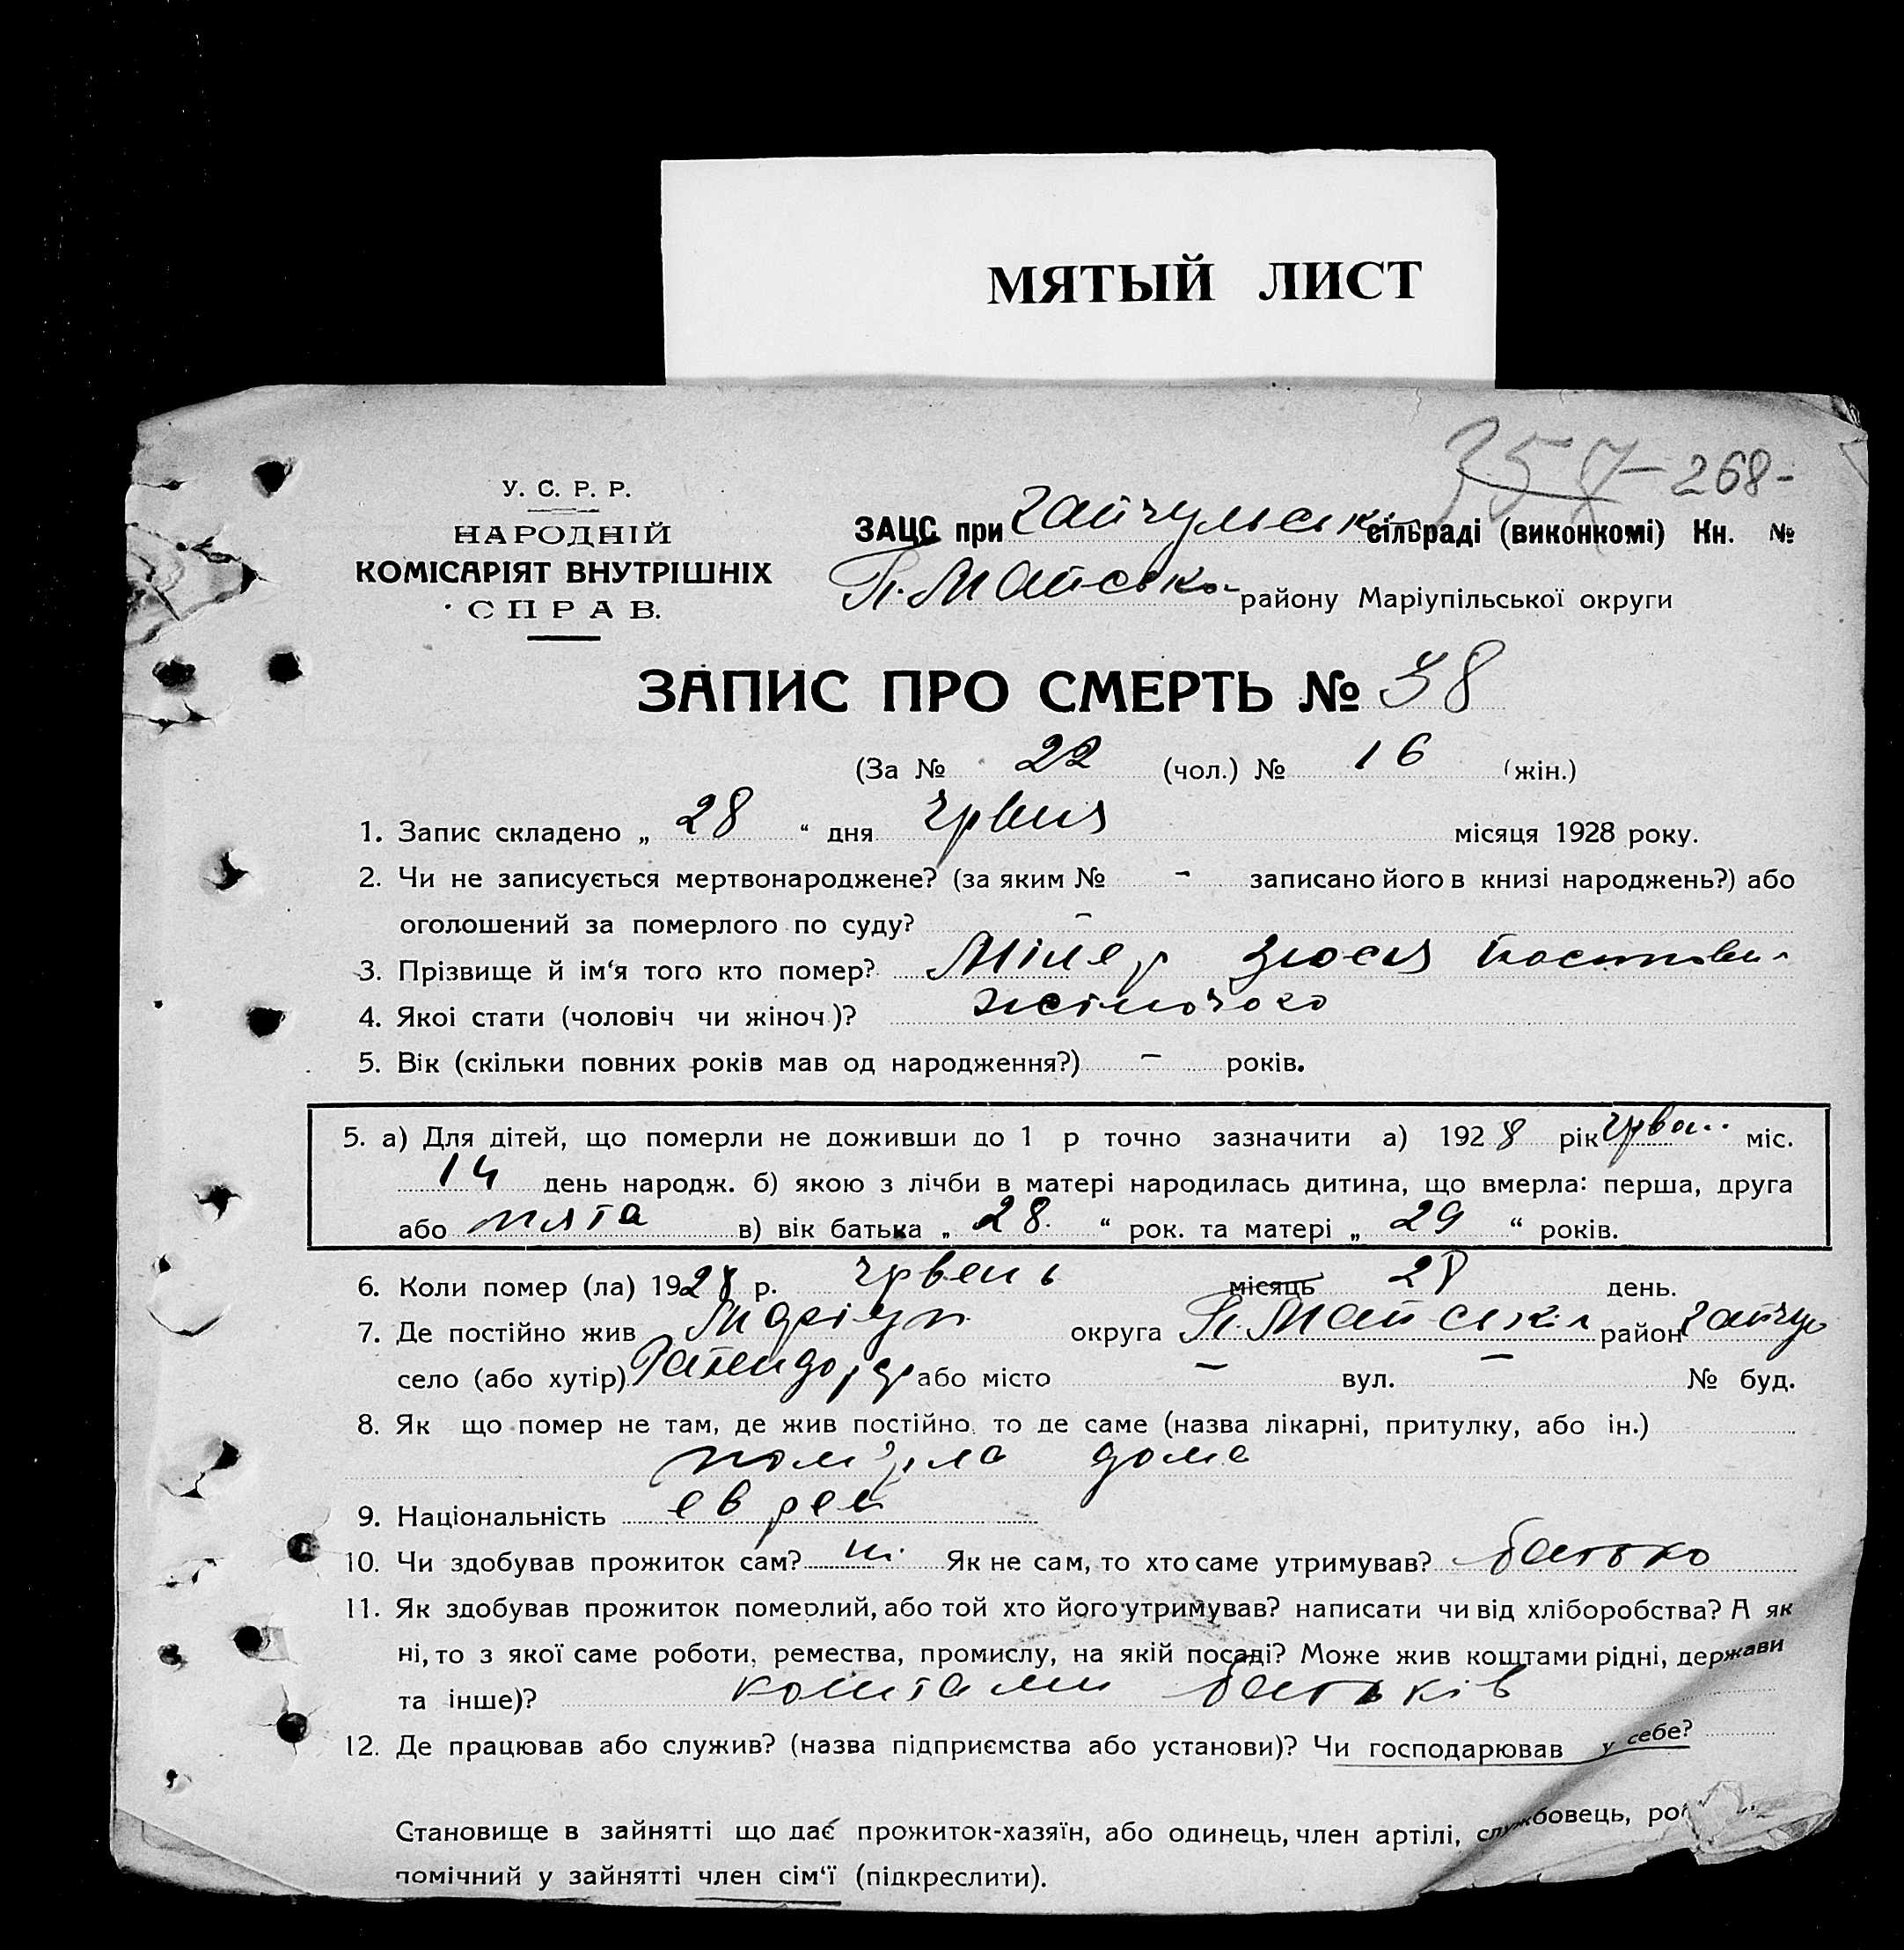 МЯТЫЙ ЛИСТ
357 - 268-
У. С. Р. Р.
НАРОДНІЙ
КОМІСАРІЯТ ВНУТРІШНІХ
СПРАВ.
ЗАЦС при Гайчульськ сільраді (виконкомі) Кн. №
П. Майсько району Маріупільської округи
ЗАПИС ПРО СМЕРТЬ № 38
(За № 22 (чол.) № 16 (жін.)
1. Запис складено „ 28 “ дня червня місяця 1928 року.
2. Чи не записується мертвонароджене? (за яким № - записано його в книзі народжень?) або
оголошений за померлого по суду? -
3. Прізвище й ім‘я того кто помер? Мілер Зюся
4. Якоі стати (чоловіч чи жіноч.)? жіночого
5. Вік (скільки повних років мав од народження?) - років.
5. а) Для дітей, що померли не доживши до 1 р точно зазначити а) 1928 рік міс.
14 день народж. б) якою з лічби в матері народилась дитина, що вмерла: перша, друга
або пята в) вік батька „ 28. “ рок. та матері „ 29 “ років.
6. Коли помер (ла) 1928 р. червень місяць 28 день.
7. Де постійно жив Маріуп округа П. Майськи район Гайчур
село (або хутір) або місто - вул. - № буд.
8. Як що помер не там, де жив постійно, то де саме (назва лікарні, притулку, або ін.)
померла дома
9. Національність еврей
10. Чи здобував прожиток сам? ні Як не сам, то хто саме утримував? батько
11. Як здобував прожиток померлий, або той хто його утримував? написати чи від хліборобства? А як
ні, то з якої саме роботи, ремества, промислу, на якій посаді? Може жив коштами рідні, держави
та інше)? коштами батьків
12. Де працював або служив? (назва підприємства або установи)? Чи господарював у себе?
Становище в зайнятті що дає прожиток-хазяїн, або одинець, член артілі, службовець, роб
помічний у зайнятті член сім‘ї (підкреслити).